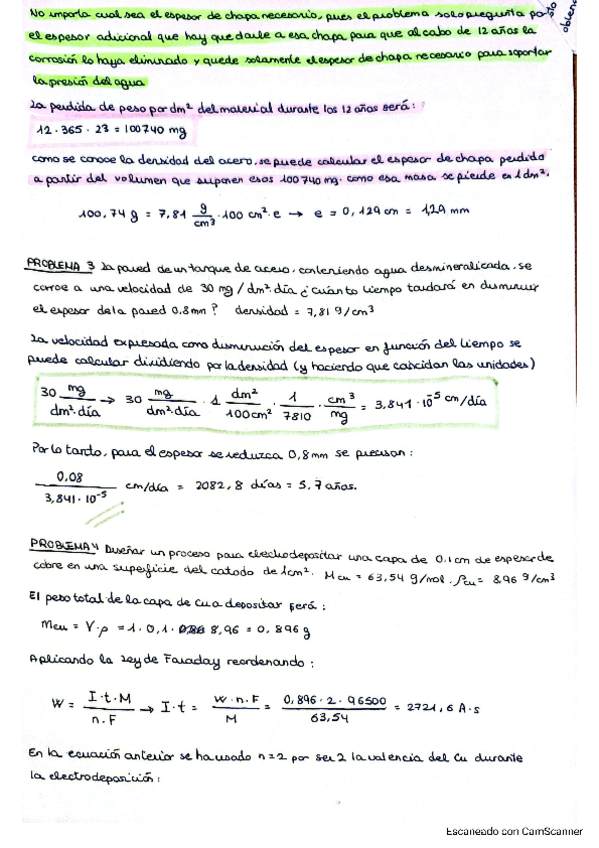 No importa cual sea el espesor de chapa necesario, pues el problema solo pregunta por
el espesor adicional que hay que darle a esa chapa para que al cabo de 12 años la
corrosión lo haya eliminado y quede solamente el espesor de chapa necesario para soportar
la presión del agua
La perdida de peso por dm² del material durante los 12 años será:
12·365·23 = 100740 mg
como se conoce la densidad del acero, se puede calcular el espesor de chapa perdido
a partir del volumen que suponen esos 100740 mg. como esa masa se pierde en 1 dm².
100,74 g = 7,81 g/cm³ · 100 cm² · e → e = 0,129 cm = 1,29 mm
PROBLEMA 3 La pared de un tanque de acero, conteniendo agua desmineralizada, se
corroe a una velocidad de 30 mg/dm²·día ¿cuánto tiempo tardará en disminuir
el espesor de la pared 0,8mm? densidad = 7,81 g/cm³
La velocidad expresada como disminución del espesor en función del tiempo se
puede calcular dividiendo por la densidad (y haciendo que coincidan las unidades)
30 mg/dm²·día → 30 mg/dm²·día · 1 dm²/100cm² · 1/7810 · cm³/mg = 3,841·10⁻⁵ cm/día
Por lo tanto, para el espesor se reduzca 0,8mm se precisan:
0,08/3,841·10⁻⁵ cm/día = 2082,8 días = 5,7 años.
PROBLEMA 4 Diseñar un proceso para electrodepositar una capa de 0.1 cm de espesor de
cobre en una superficie del catodo de 1cm². Mcu = 63,54 g/mol. ρcu = 8.96 g/cm³
El peso total de la capa de Cu a depositar será:
Mcu = V·ρ = 1·0,1· 8,96 = 0,896 g
Aplicando la Ley de Faraday reordenando:
W = I·t·M/n.F → I·t = W·n·F/M = 0,896·2·96500/63,54 = 2721,6 A·s
En la ecuación anterior se ha usado n=2 por ser 2 la valencia del Cu durante
la electrodeposición:
Escaneado con CamScanner